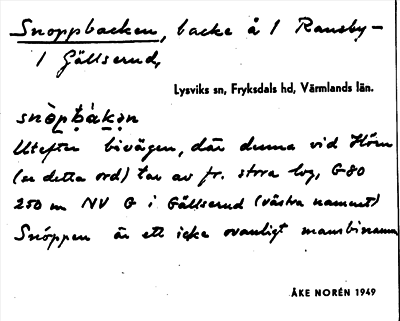 Snoppbacken, backe å 1 Ransby-
1 Gällserud,
Lysviks sn, Fryksdals hd, Värmlands län.
snòp̥b̀ákən
Utefter bivägen, där denna vid Hörn
(se detta ord) tar av fr. stora lvg, G80
250 m NV G i Gällserud (västra namnet)
Snöppen är ett icke ovanligt mansbinamn
ÅKE NORÉN 1949